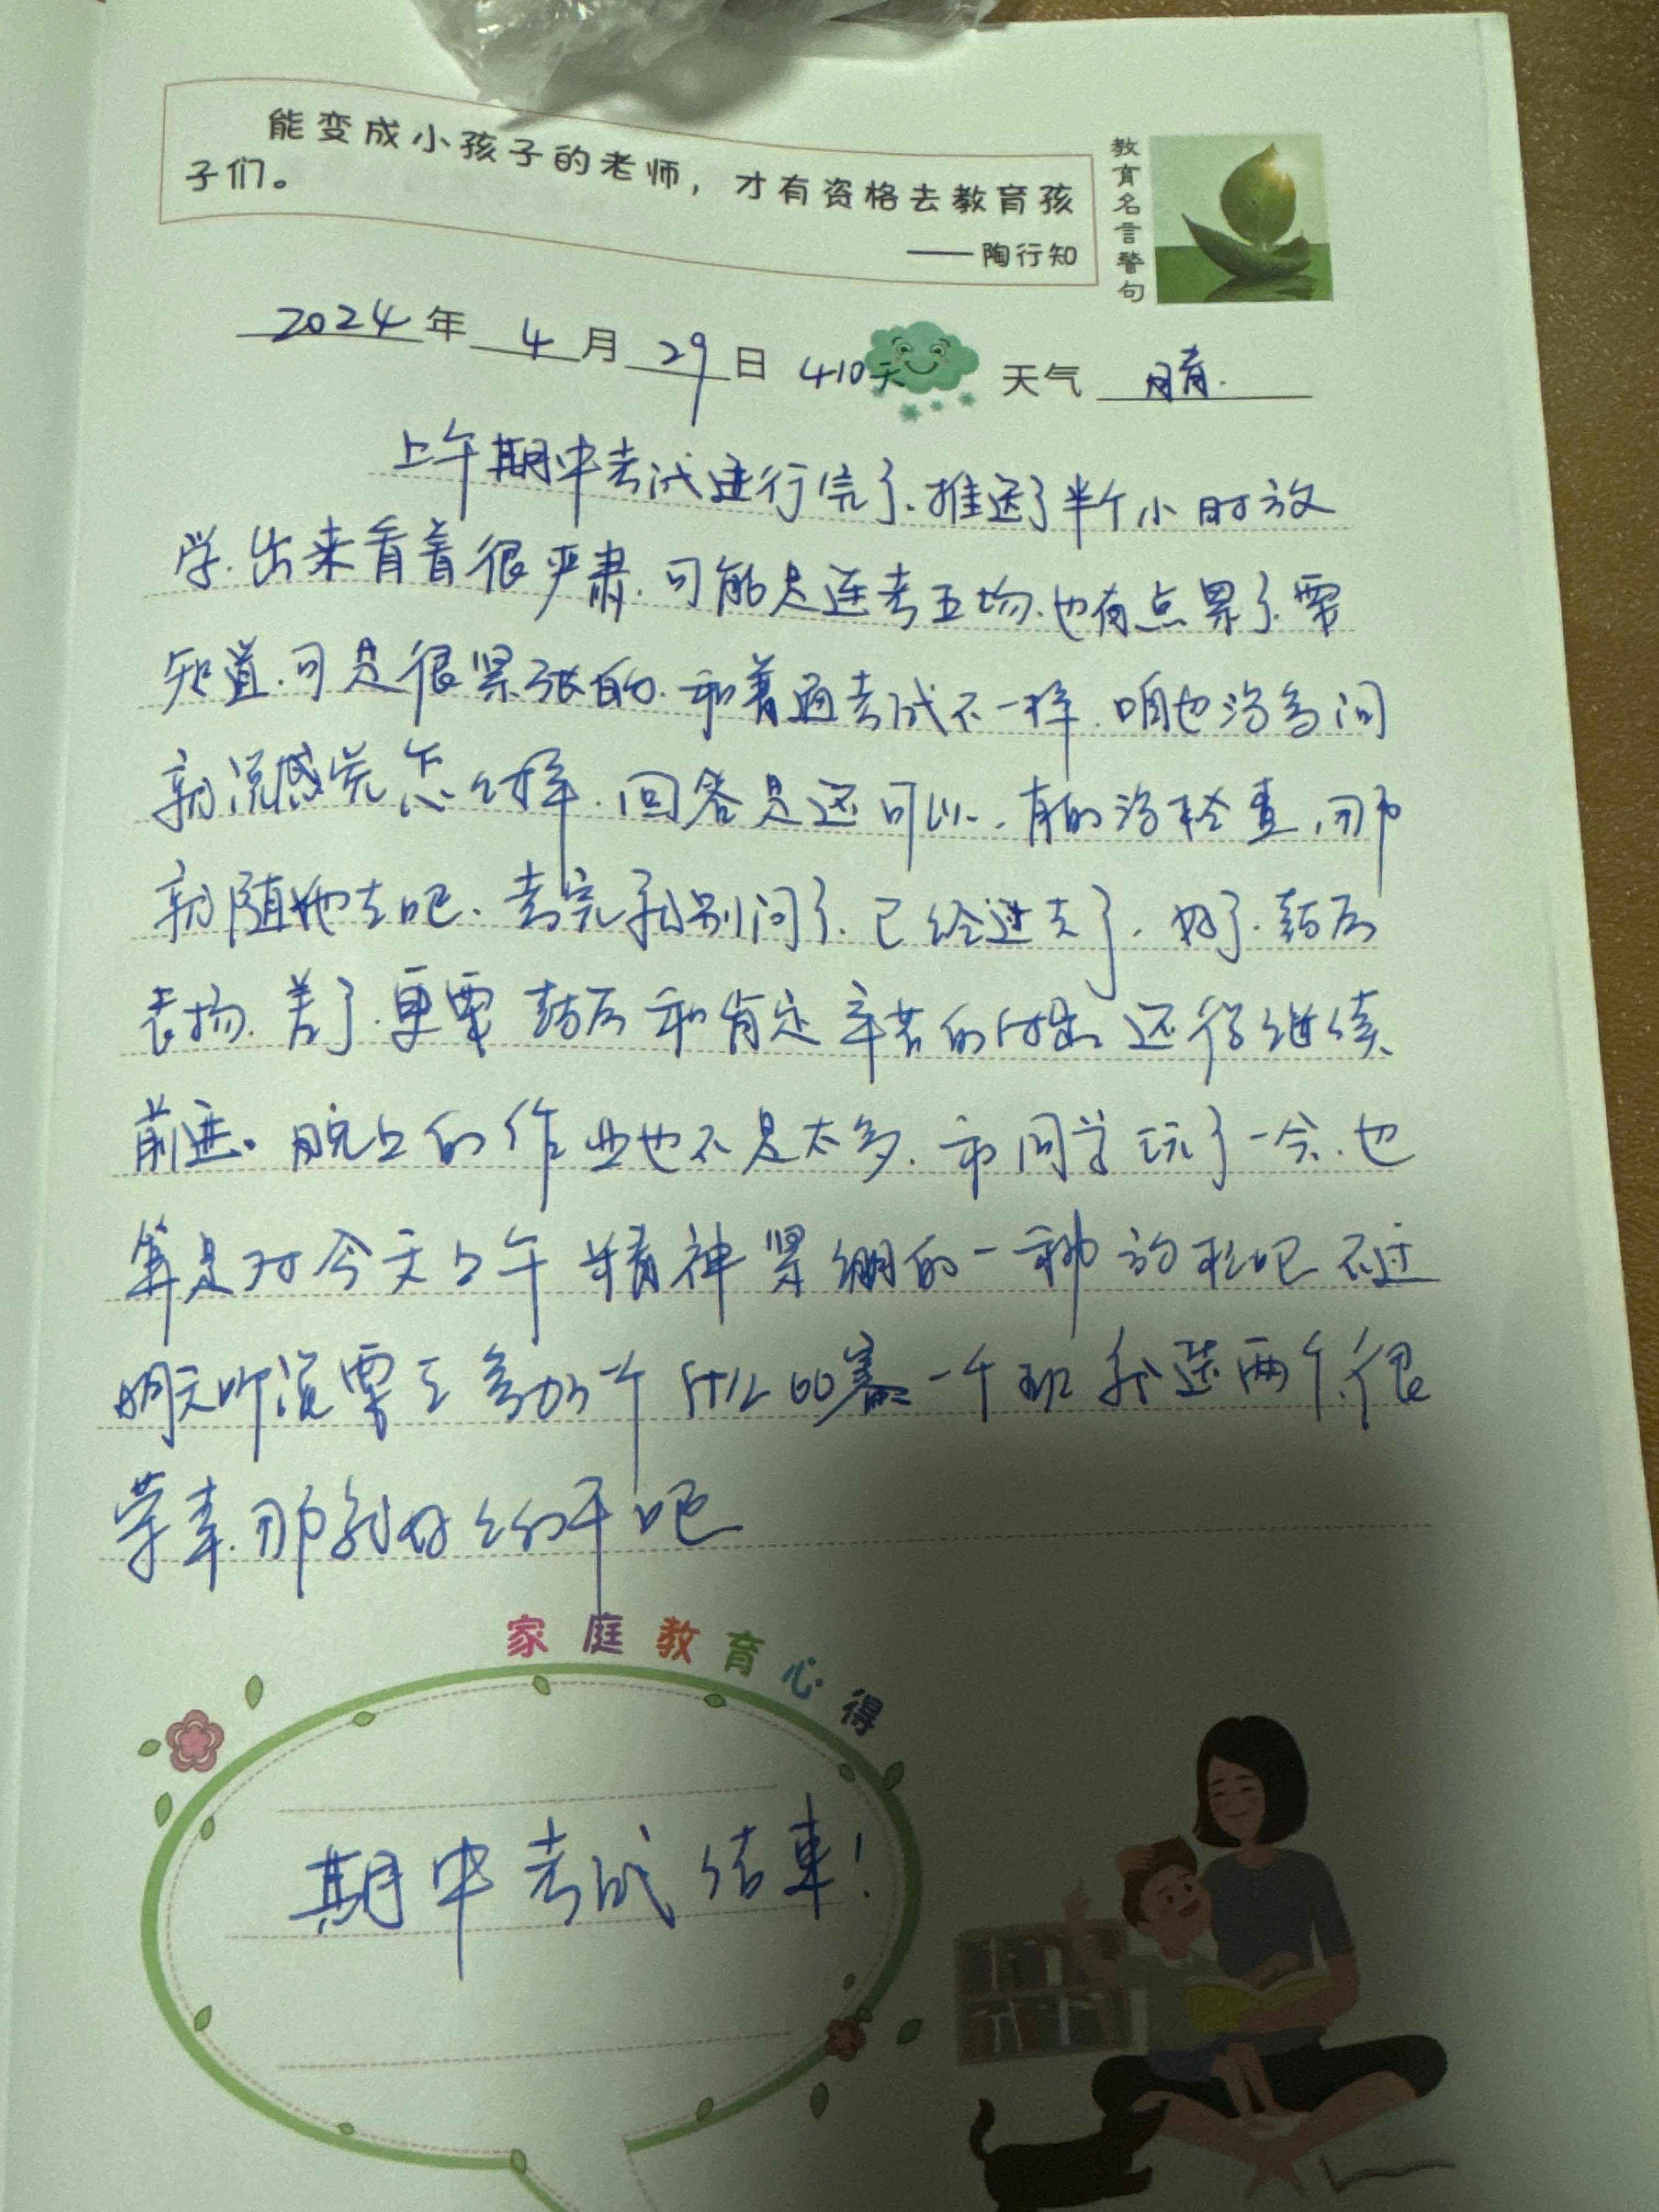 能变成小孩子的老师，才有资格去教育孩
子们。
——陶行知
教育名言警句
2024年4月29日 410天 天气 晴.
上午期中考试进行完了.推迟了半个小时放
学.出来看着很严肃.可能是连考五场.也有点累了.要
知道.可是很紧张的.和普通考试不一样.咱也没多问
就说感觉怎么样.回答是还可以.有的没检查,那
就随她去吧.考完就别问了.已经过去了.好了.鼓励
表扬.差了.更要鼓励和肯定辛苦的付出 还得继续
前进。晚上的作业也不是太多.和同学玩了一会.也
算是对今天上午精神紧绷的一种放松吧 不过
明天听说要去参加一个什么比赛 一个班就选两个.很
荣幸.那就好好干吧
家庭教育心得
期中考试结束!